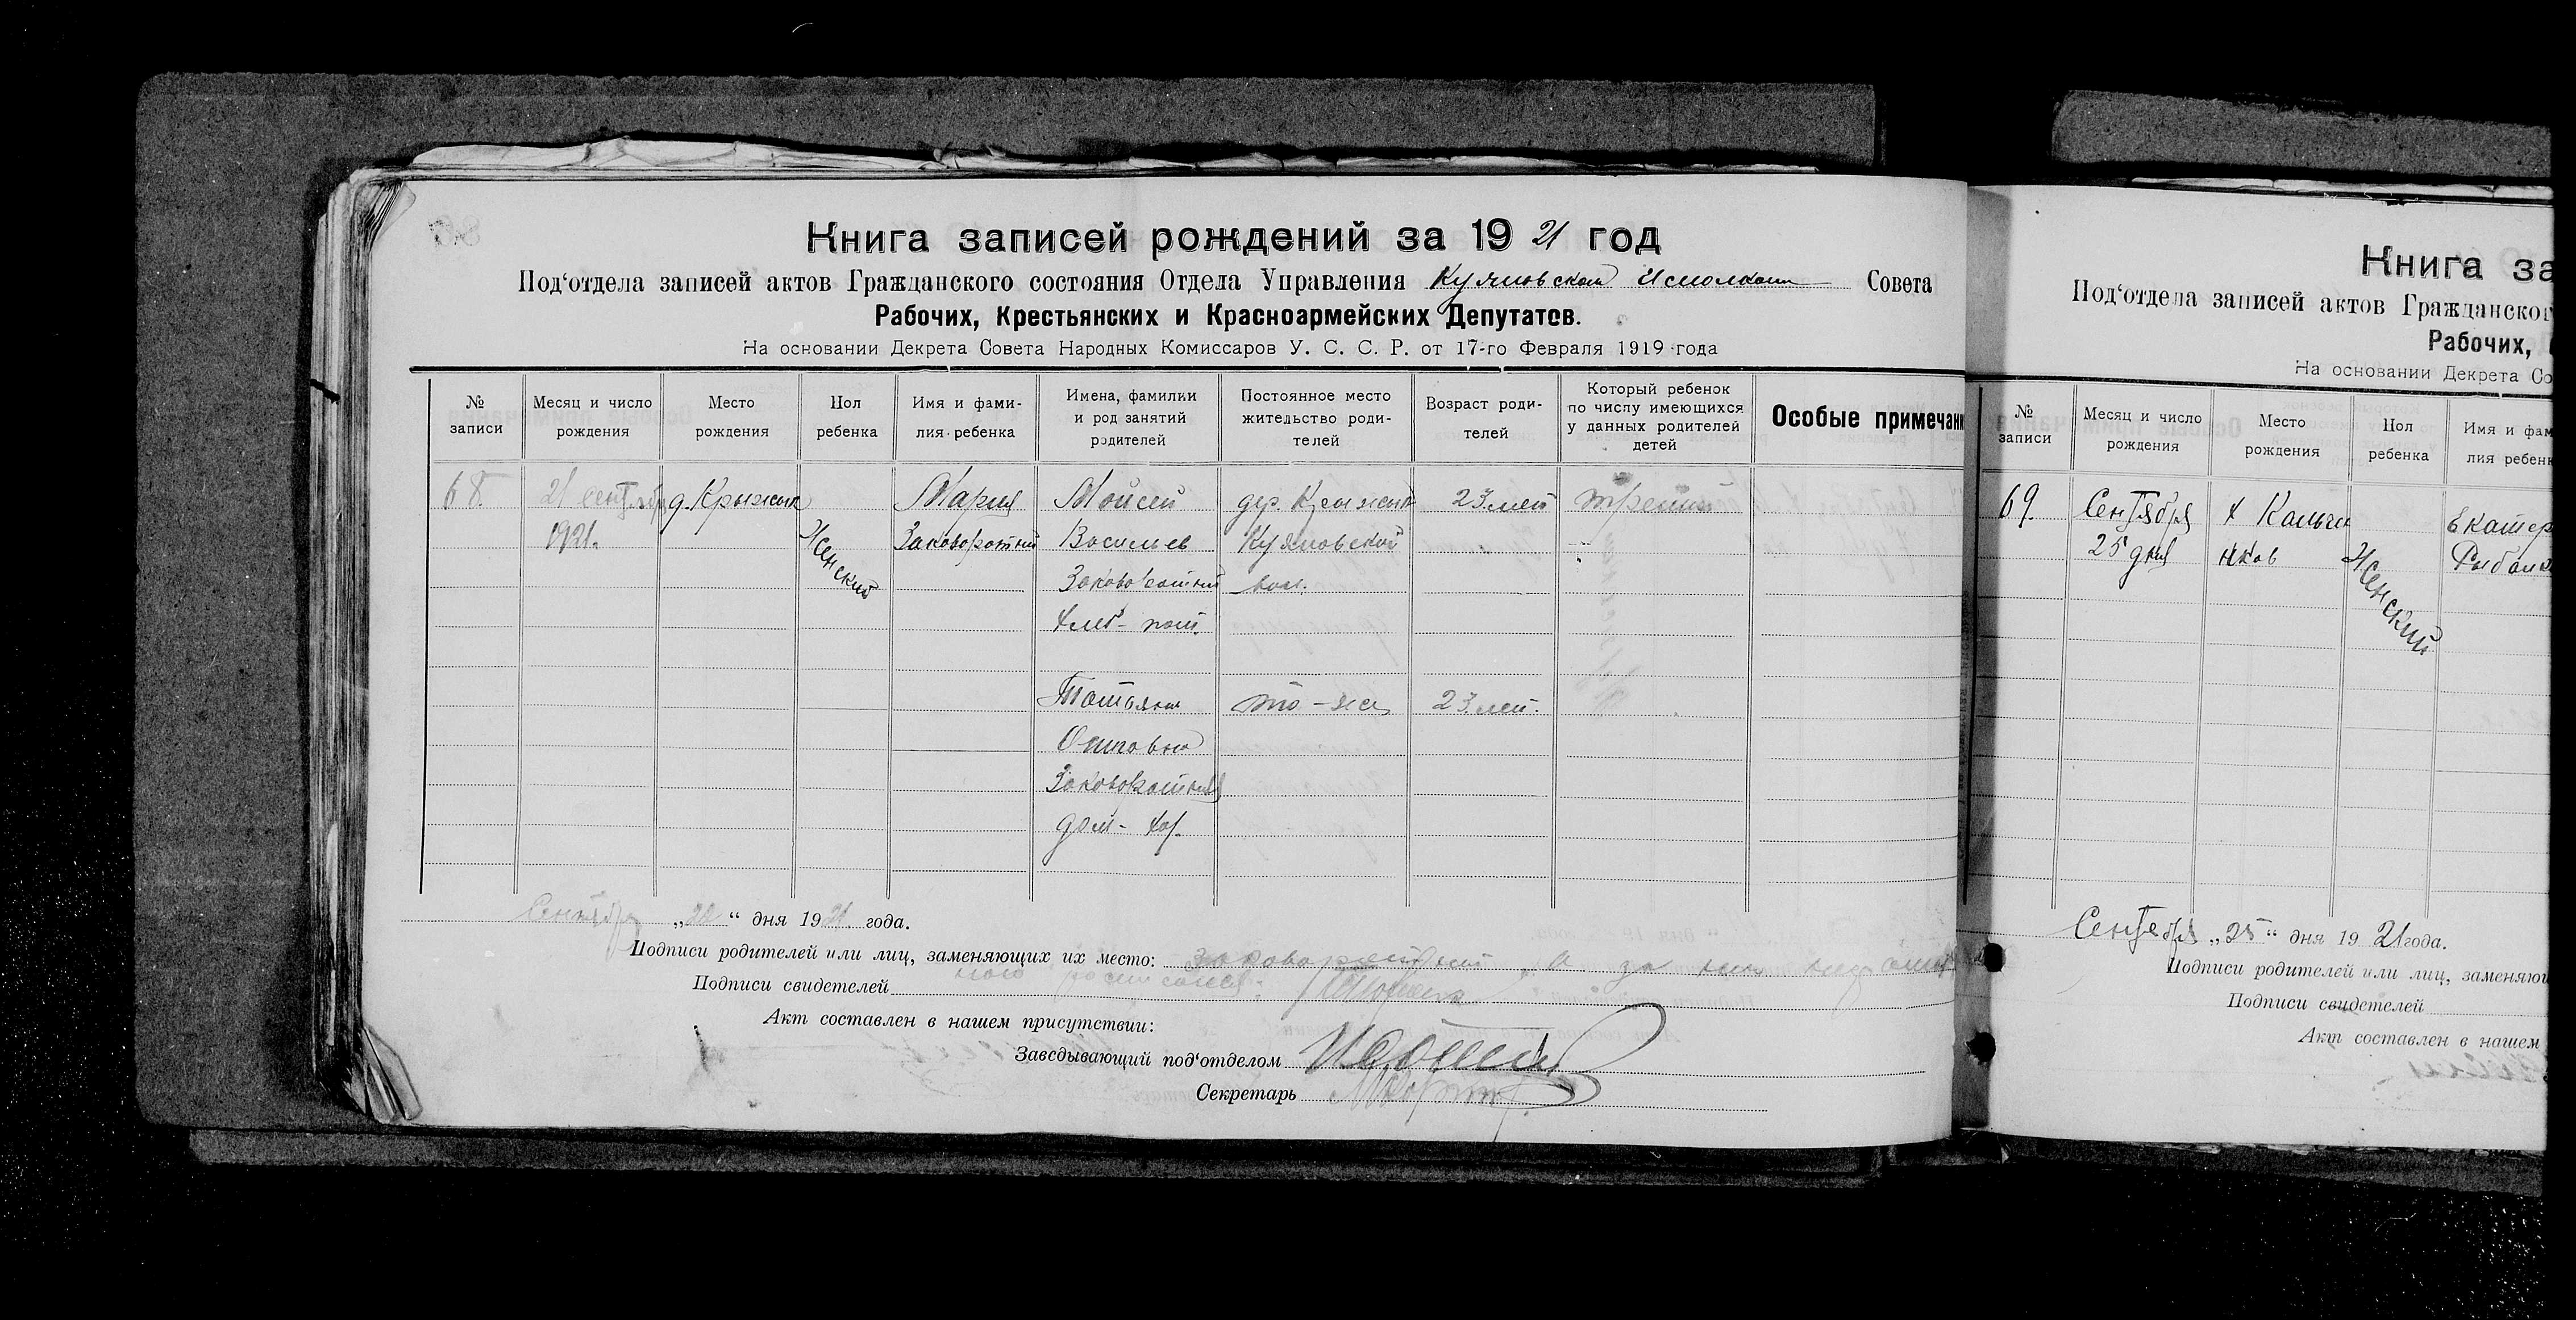 Книга записей рождений за 1921 год
Под‘отдела записей актов Гражданского состояния Отдела Управления Куяновском Исполком Совета
Рабочих, Крестьянских и Красноармейских Депутатов.
На основании Декрета Совета Народных Комиссаров У. С. С. Р. от 17-го Февраля 1919 года
№ записи
Месяц и число рождения
Место рождения
Пол ребенка
Имя и фами-
лия ребенка
Имена, фамилки
и род занятий
родителей
Постоянное место
жительство роди-
телей
Возраст роди-
телей
Который ребенок
по числу имеющихся
у данных родителей
детей
Особые примечани
68.
21 сентября
1921.
д. Крыжик
Женский
Мария
Заковоротний
Мойсей
Васильев
Заковоротний
хлеб-паш.
дер. Крыжик
Куяновской
вол.
23 лет
третий
Татьяна
Осиповна
Заковоротняя
дом-хоз.
то-же
23 лет.
Сентября „22“ дня 1921 года.
Подписи родителей или лиц, заменяющих их место: Заковоротний, а за
Подписи свидетелей
Акт составлен в нашем присутствии:
Заведывающий под‘отделом
Секретарь
Книга за
Под‘отдела записей актов Гражданског
Рабочих,
На основании Декрета Со
№ записи
Месяц и число
рождения
Место
рождения
Пол
ребенка
Имя и фам
лия ребенк
69.
Сентября
25 дня
х Кальчен
ков
Женский
Екатер
Рыбалк
Сентября „25“ дня 1921 года.
Подписи родителей или лиц, заменяю
Подписи свидетелей
Акт составлен в нашем